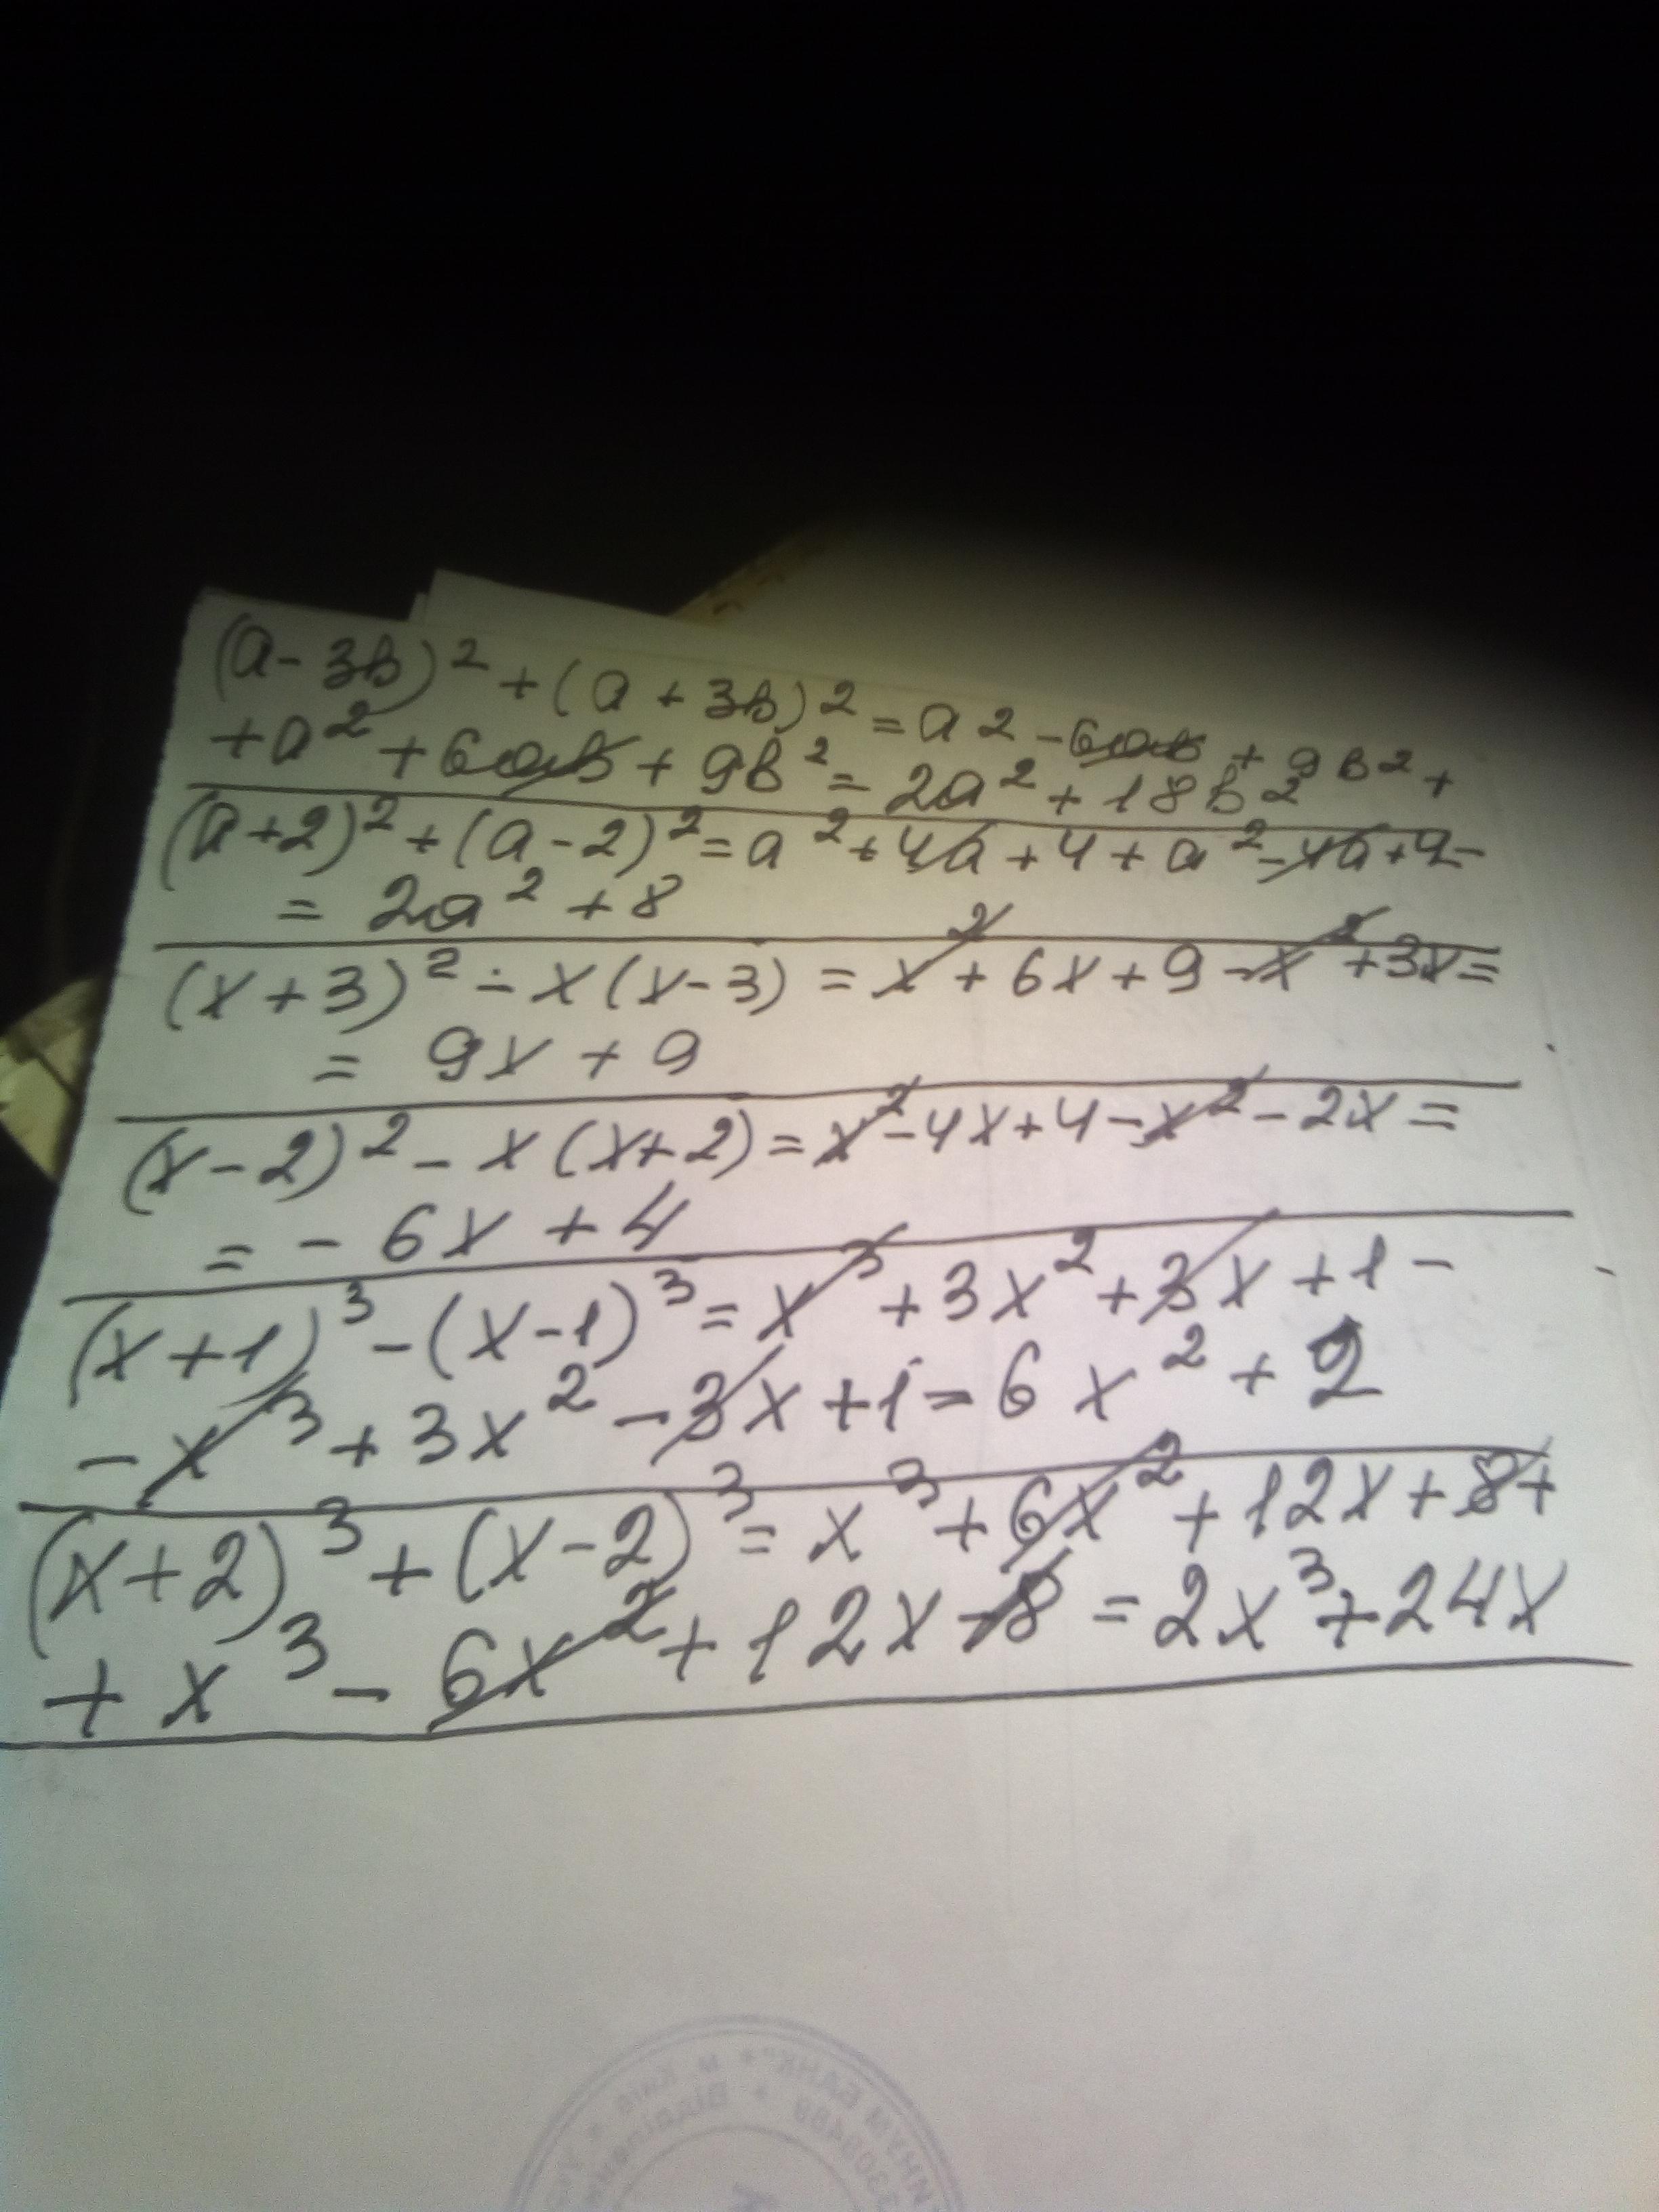 (a-3b)² + (a+3b)² = a² - 6ab + 9b² +
+ a² + 6ab + 9b² = 2a² + 18b²
(a+2)² + (a-2)² = a² + 4a + 4 + a² - 4a + 4 -
= 2a² + 8
(x+3)² - x(x-3) = x² + 6x + 9 - x² + 3x =
= 9x + 9
(x-2)² - x(x+2) = x² - 4x + 4 - x² - 2x =
= - 6x + 4
(x+1)³ - (x-1)³ = x³ + 3x² + 3x + 1 -
- x³ + 3x² - 3x + 1 = 6x² + 2
(x+2)³ + (x-2)³ = x³ + 6x² + 12x + 8 +
+ x³ - 6x² + 12x - 8 = 2x³ + 24x